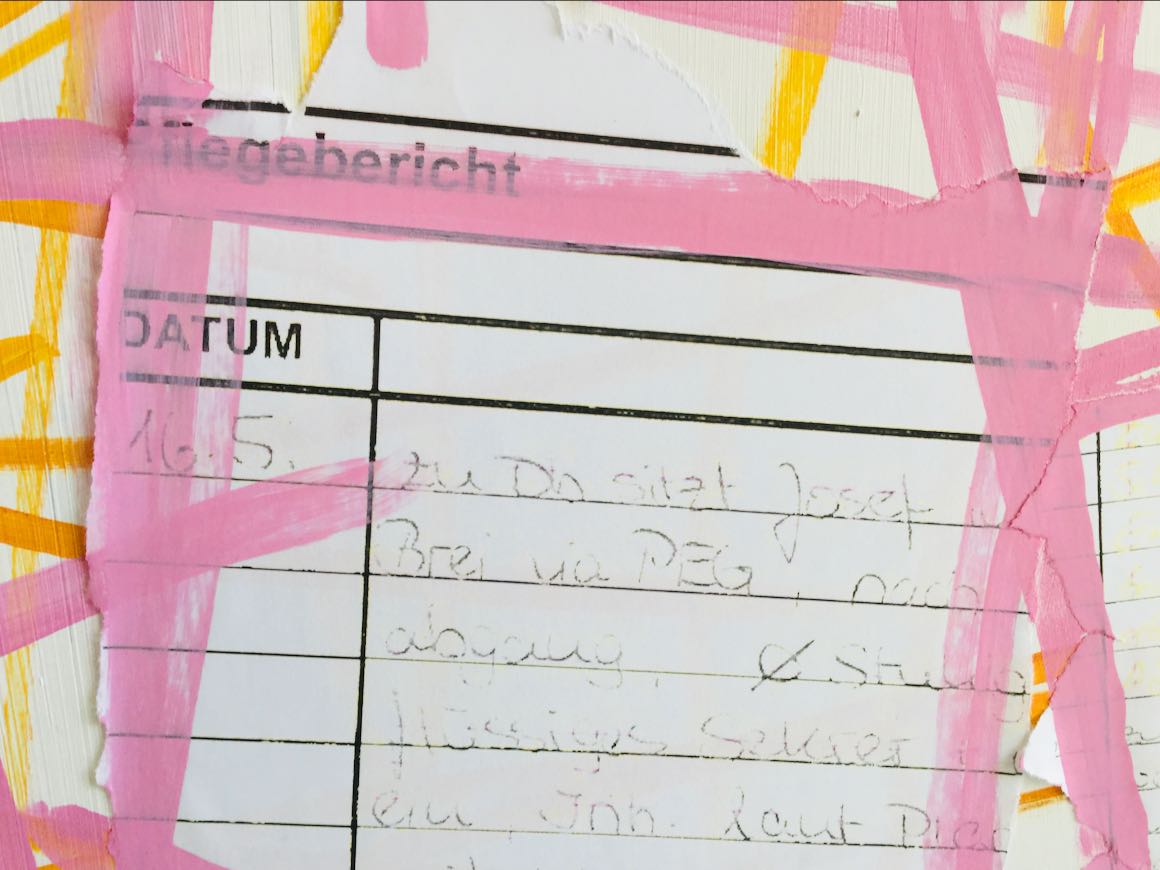 Pflegebericht
DATUM
16.5. zu Db sitzt Josef
Brei via PEG, nach
abgang, Ø Stuhlg
flüssiges Sekret
ein, Inh. laut